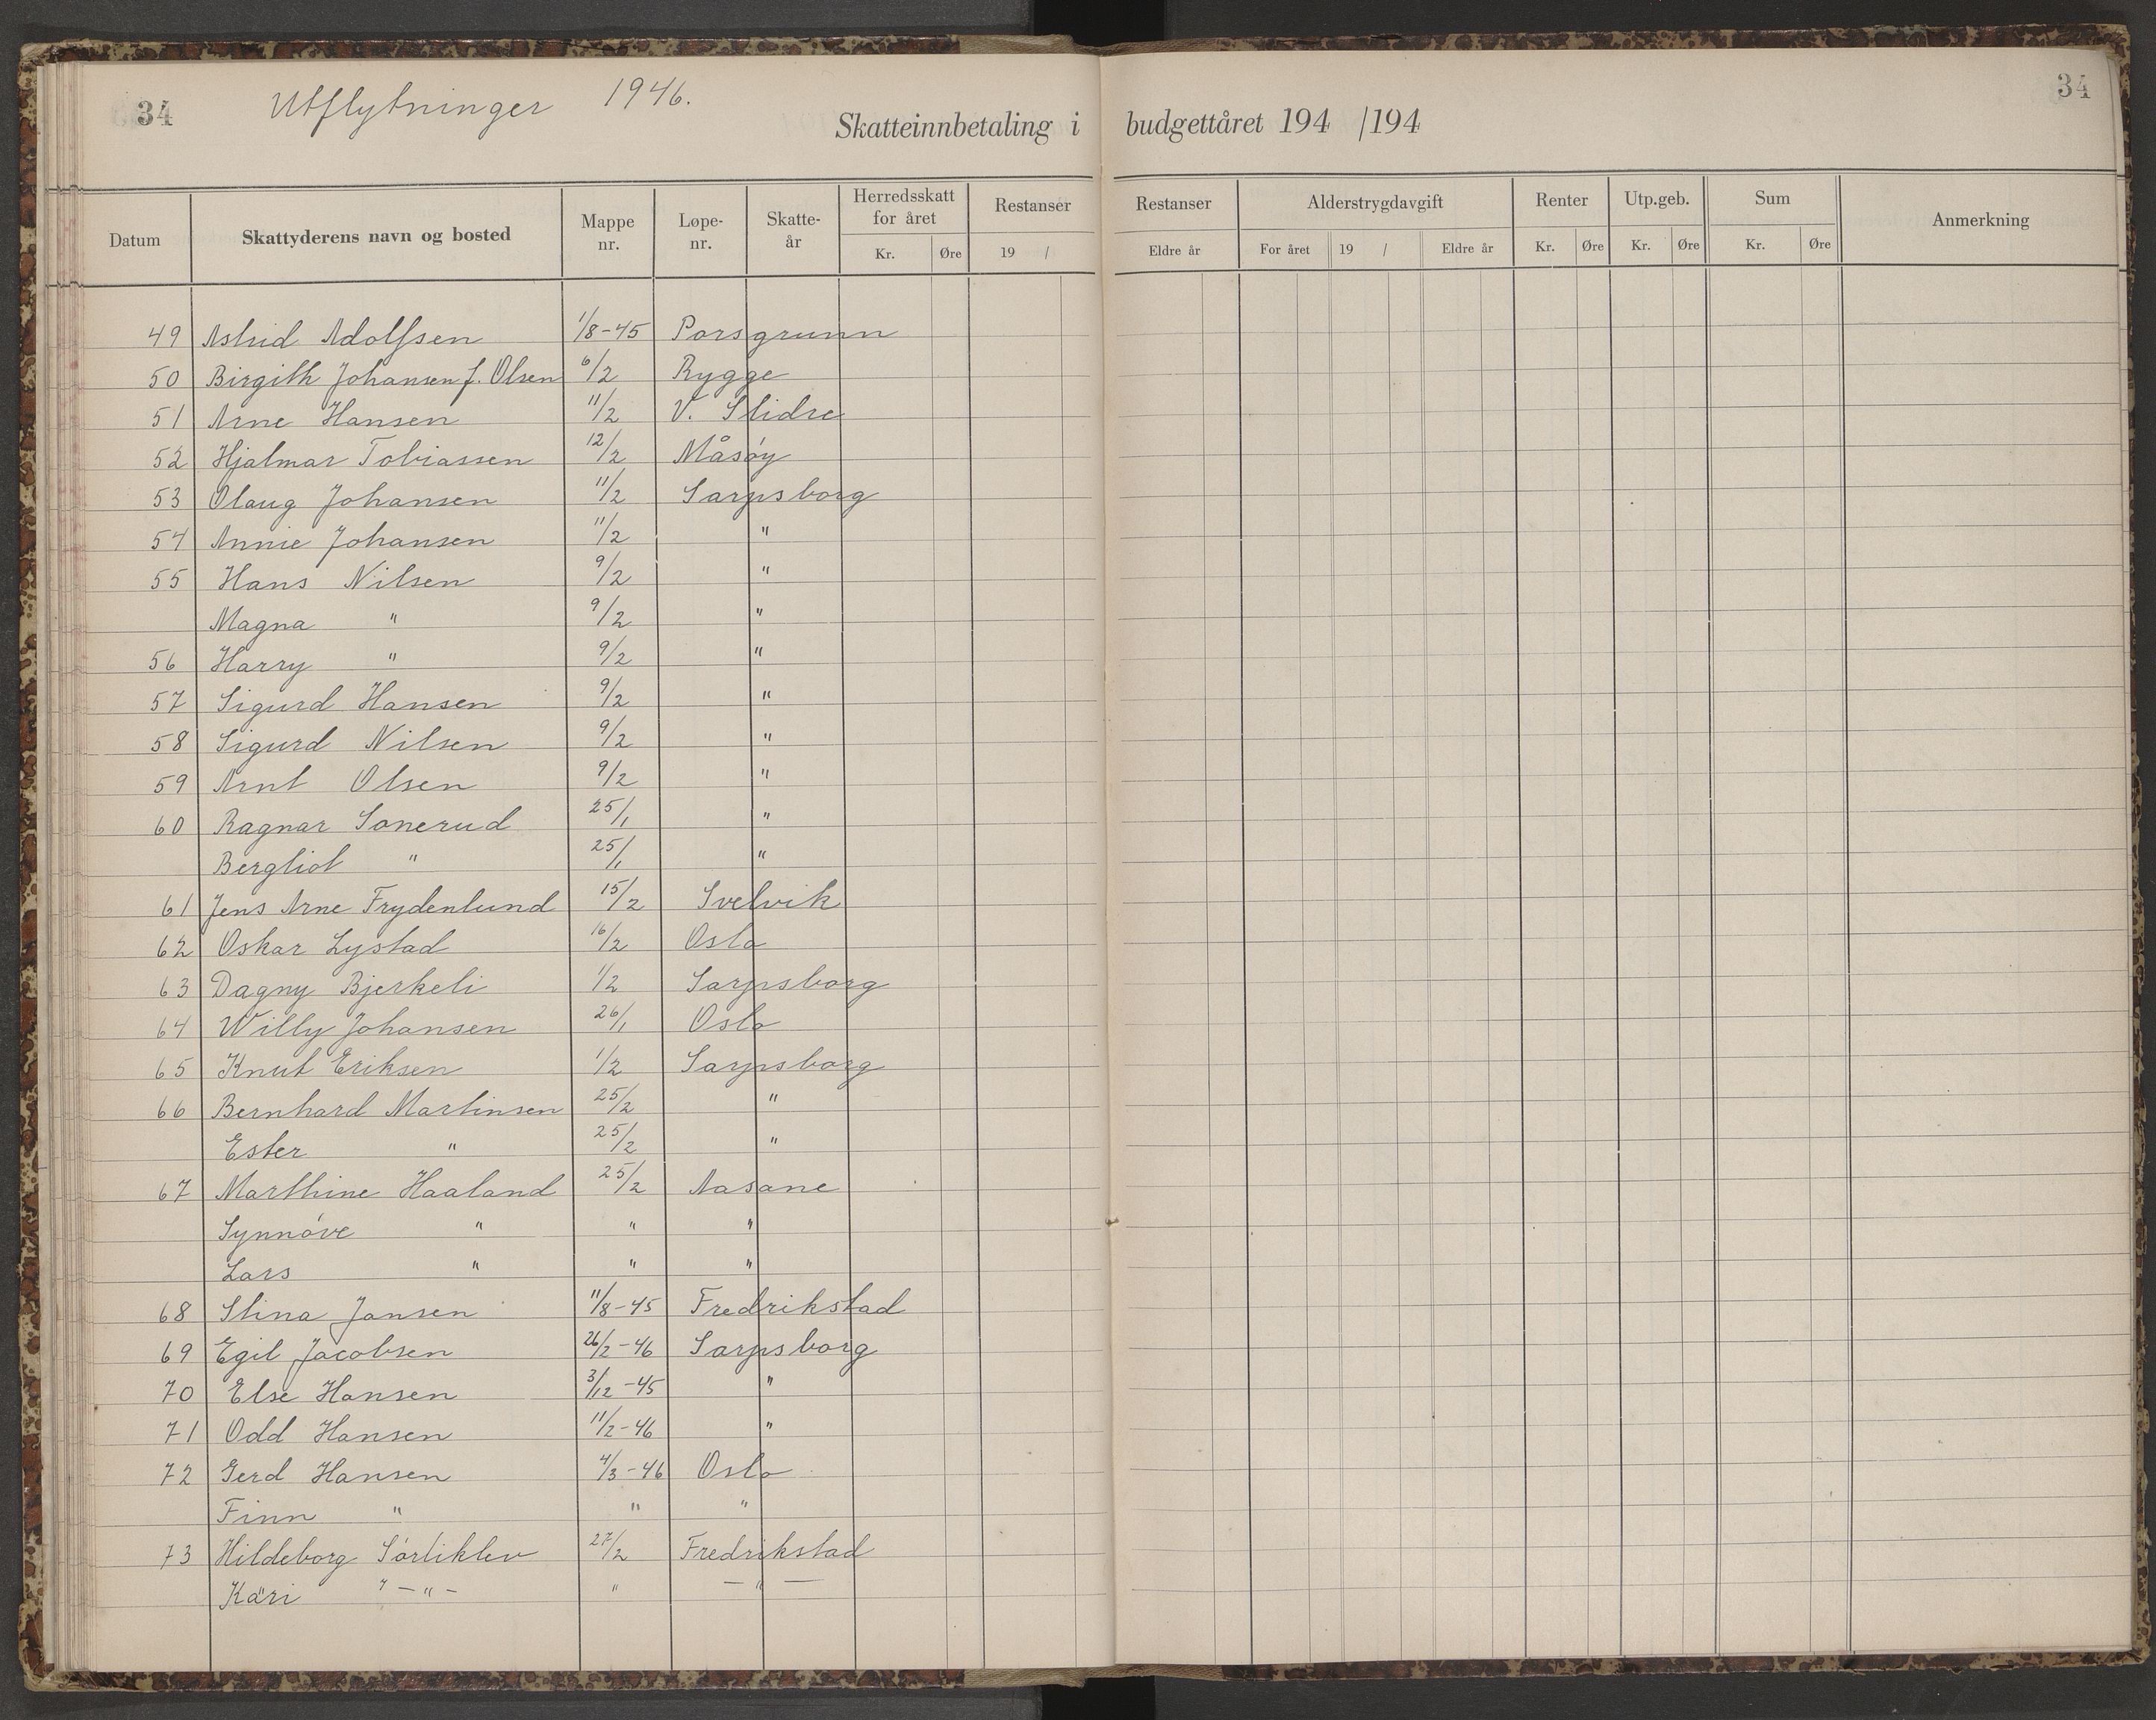 34 Utflytninger 1946. 34
Skatteinnbetaling i budgettåret 194 /194
Datum Skattyderens navn og bosted Mappe nr. Løpe- nr. Skatte- år Herredsskatt for året Kr. Øre Restanser 19 / Restanser Eldre år Alderstrygdavgift For året 19 / Eldre år Renter Kr. Øre Utp.geb. Kr. Øre Sum Kr. Øre Anmerkning
49 Astrid Adolfsen 1/8-45 Porsgrunn
50 Birgith Johansen f. Olsen 6/2 Rygge
51 Arne Hansen 11/2 V. Slidre
52 Hjalmar Tobiassen 12/2 Måsøy
53 Olaug Johansen 11/2 Sarpsborg
54 Annie Johansen 11/2 "
55 Hans Nilsen 9/2 "
Magna " 9/2 "
56 Harry " 9/2 "
57 Sigurd Hansen 9/2 "
58 Sigurd Nilsen 9/2 "
59 Arnt Olsen 9/2 "
60 Ragnar Sonerud 25/1 "
Bergliot " 25/1 "
61 Jens Arne Frydenlund 15/2 Svelvik
62 Oskar Lystad 16/2 Oslo
63 Dagny Bjerkeli 1/2 Sarpsborg
64 Willy Johansen 26/1 Oslo
65 Knut Eriksen 1/2 Sarpsborg
66 Bernhard Martinsen 25/2 "
Ester " 25/2 "
67 Marthine Haaland 25/2 Aasane
Synnøve " " "
Lars " " "
68 Stina Jansen 11/8-45 Fredrikstad
69 Egil Jacobsen 26/2-46 Sarpsborg
70 Else Hansen 3/12-45 "
71 Odd Hansen 11/2-46 "
72 Gerd Hansen 4/3-46 Oslo
Finn " " "
73 Hildeborg Sørliklev 27/2 Fredrikstad
Kari " - " - " - " -